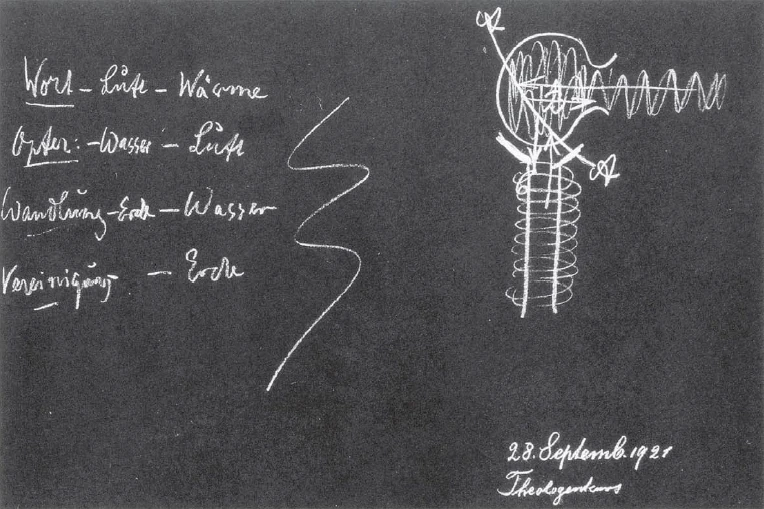 Wort – Luft – Wärme
Opfer: – Wasser – Luft
Wandlung – Erde – Wasser
Vereinigung – Erde
28. Septemb. 1921
Theologenkurs